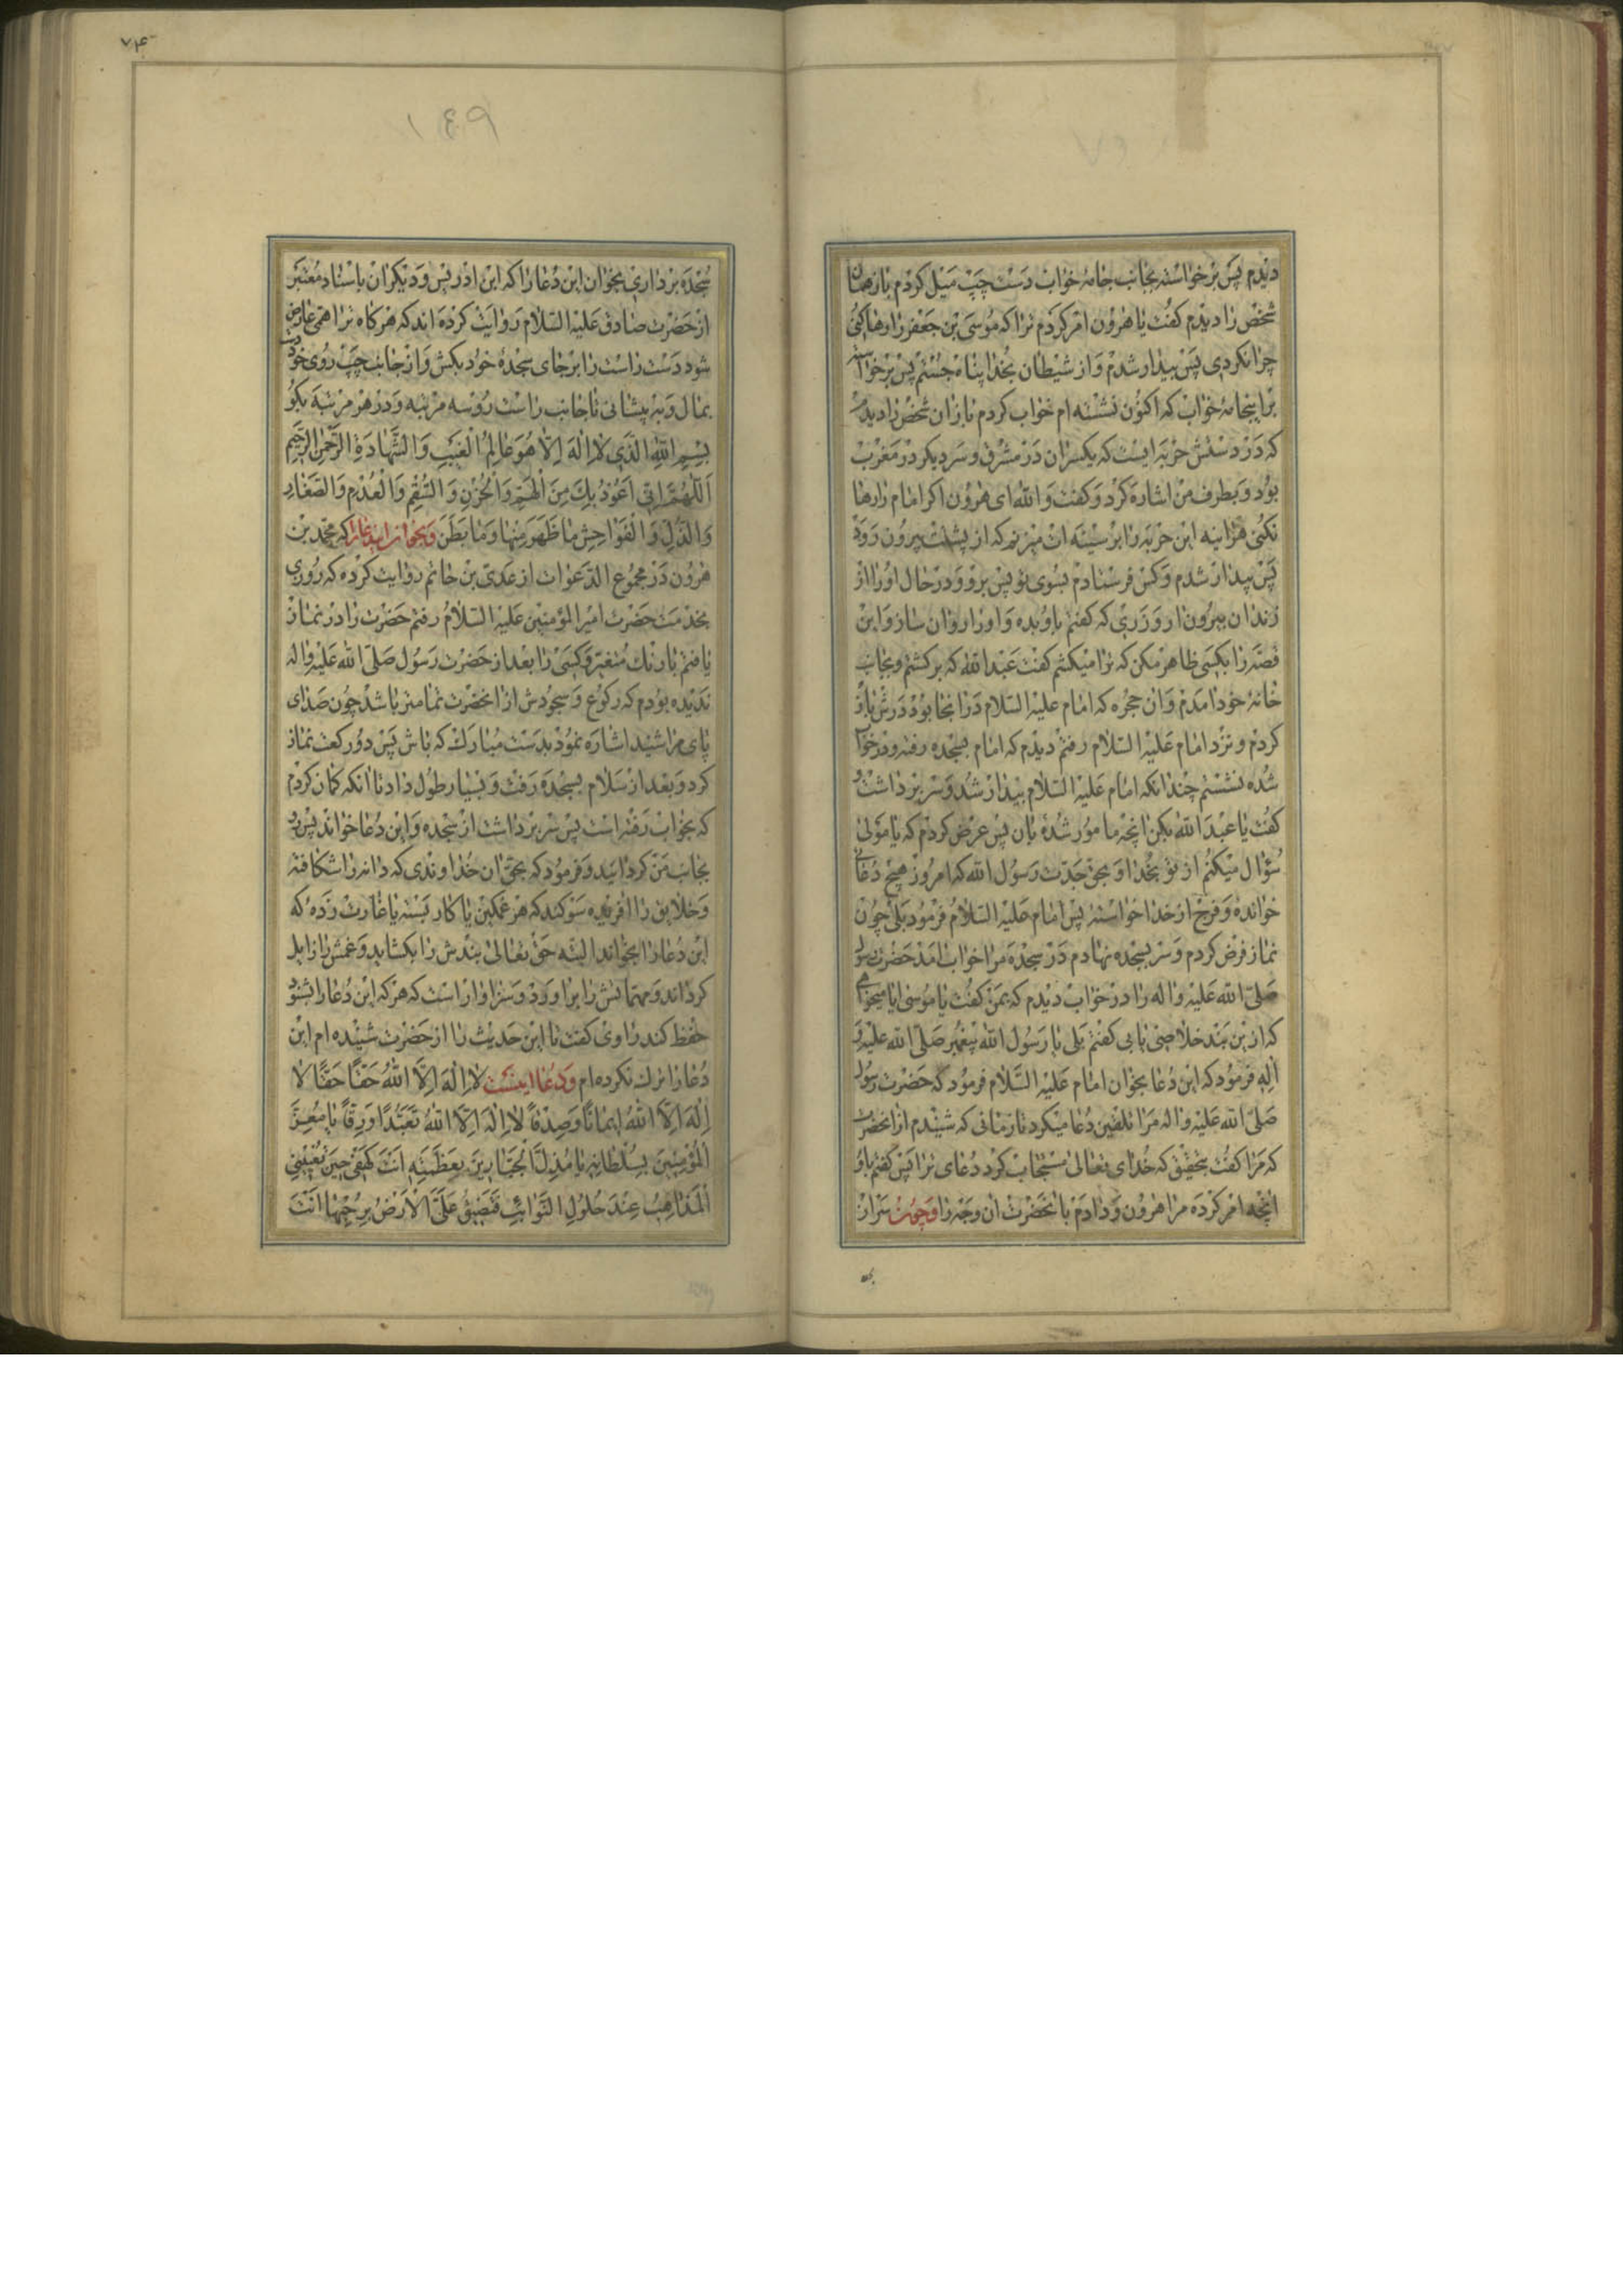 دیدم پس برخواسته بجانب جامهٔ خواب دست چپ میل کردم باز همان
شخص را دیدم کفت یا هرون امر کردم ترا که موسی بن جعفر را رها کنی
چرا نکردی پس بیدار شدم و از شیطان بخدا پناه جستم پس برخواسته
براینجامهٔ خواب که اکنون نشسته ام خواب کردم باز آن شخص را دیدم
که در دستش حربه ایست که یکسر آن در مشرق و سر دیکر در مغرب
بود و بطرف من اشاره کرد و کفت والله ای هرون اکر امام را رها
نکنی هراینه این حربه را بر سینه ات میزنم که از پشتت بیرون رود
پس بیدار شدم و کس فرستادم بسوی تو پس برو و در حال او را از
زندان بیرون ار و زری که کفتم باو بده و او را روان ساز و این
قصه را بکسی ظاهر مکن که ترا میکشم کفت عبدالله که برکشتم و بجانب
خانهٔ خود آمدم و آن حجره که امام علیه السلام در آنجا بود درش باز
کردم و نزد امام علیه السلام رفتم دیدم که امام بسجده رفته و در خواب
شده نشستم چندانکه امام علیه السلام بیدار شد و سر برداشت و
کفت یا عبدالله بکن انچه مامور شدهٔ بان پس عرض کردم که یا مولی
سؤال میکنم از تو بخدا و بحق جدت رسول الله که امروز هیچ دعای
خوانده و فرج از خدا خواسته پس امام علیه السلام فرمود بلی چون
نماز فرض کردم و سر بسجده نهادم در سجده مرا خواب آمد حضرت رسول
صلی الله علیه واله را در خواب دیدم که بمن کفت یا موسی ایا میخواهی
که از این بند خلاصی یابی کفتم بلی یا رسول الله پیغمبر صلی الله علیه و
آله فرمود که این دعا بخوان امام علیه السلام فرمود که حضرت رسول
صلی الله علیه واله مرا تلقین دعا میکرد تا زمانی که شنیدم از آنحضرت
که مرا کفت بتحقیق که خدای تعالی مستجاب کرد دعای ترا پس کفتم باو
انچه امر کرده مرا هرون و دادم بانحضرت آن وجه را و چون سر از
۷۴
۱۴۹
سجده برداری بخوان این دعا را که ابن ادریس و دیکران باسناد معتبر
از حضرت صادق علیه السلام روایت کرده اند که هرکاه ترا همی عارض
شود دست راست را بر جای سجدهٔ خود بکش و از جانب چپ روی خود دست
بمال و بر پیشانی تا جانب راست رو سه مرتبه و در هر مرتبه بکو
بسم الله الذی لا اله الا هو عالم الغیب والشهادة الرحمن الرحیم
اللهم انی اعوذ بک من الهم والحزن والسقم والعدم والصغار
والذل والفواحش ما ظهر منها وما بطن و بخوان ایندعا را که محمد بن
هرون در مجموع الدعوات از عدی بن حاتم روایت کرده که روزی
بخدمت حضرت امیرالمؤمنین علیه السلام رفتم حضرت را در نماز
یافتم با رنک متغیر و کسی را بعد از حضرت رسول صلی الله علیه واله
ندیده بودم که رکوع و سجودش از آنحضرت تمامتر باشد چون صدای
پای مرا شنید اشاره نمود بدست مبارک که باش پس دو رکعت نماز
کرد و بعد از سلام بسجده رفت و بسیار طول داد تا آنکه کمان کردم
که بخواب رفته است پس سر برداشت از سجده و این دعا خواند پس رو
بجانب من کردانید و فرمود که بحق آن خداوندی که دانه را شکافته
و خلایق را آفریده سوکند که هر غمکین یا کار بسته یا غارت زدهٔ که
این دعا را بخواند البته حق تعالی بندش را بکشاید و غمش را زایل
کرداند و مهماتش را براورد و سزاوار است که هرکه این دعا را بشنود
حفظ کند راوی کفت تا این حدیث را از حضرت شنیده ام این
دعا را ترک نکرده ام و دعا اینست لا اله الا الله حقا حقا لا
اله الا الله ایمانا وصدقا لا اله الا الله تعبدا ورقا یا معز
المؤمنین بسلطانه یا مذل الجبارین بعظمته انت کهفی حین تعیینی
المذاهب عند حلول النوائب فتضیق علی الارض برحبها انت